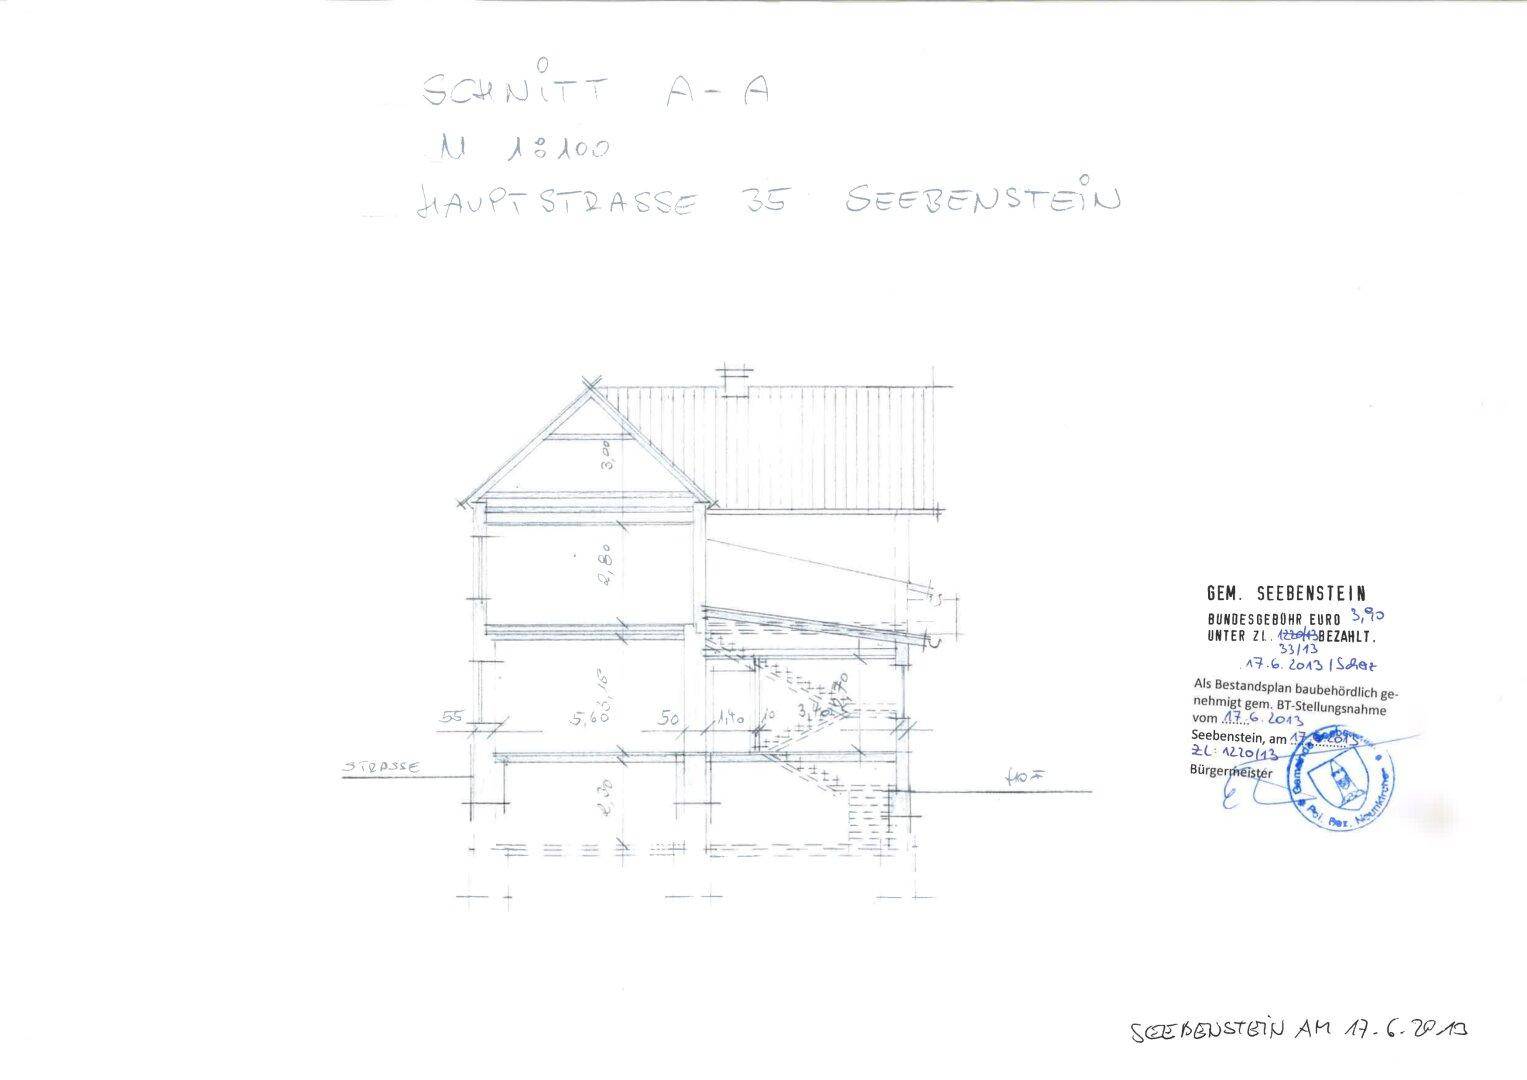 SCHNITT A-A
M 1:100
HAUPTSTRASSE 35 SEEBENSTEIN
3,00
2,80
3,15
2,70
55 5,60 50 1,40 10
STRASSE
HOF
2,30
GEM. SEEBENSTEIN
BUNDESGEBÜHR EURO 3,90
UNTER ZL. 1220/13 BEZAHLT.
33/13
17.6. 2013 / Scherz
Als Bestandsplan baubehördlich ge-
nehmigt gem. BT-Stellungsnahme
vom 17.6.2013
Seebenstein, am 17.6.2013
ZL: 1220/13
Bürgermeister
Gemeinde Seebenstein
Pol. Bez. Neunkirchen
SEEBENSTEIN AM 17.6.2013